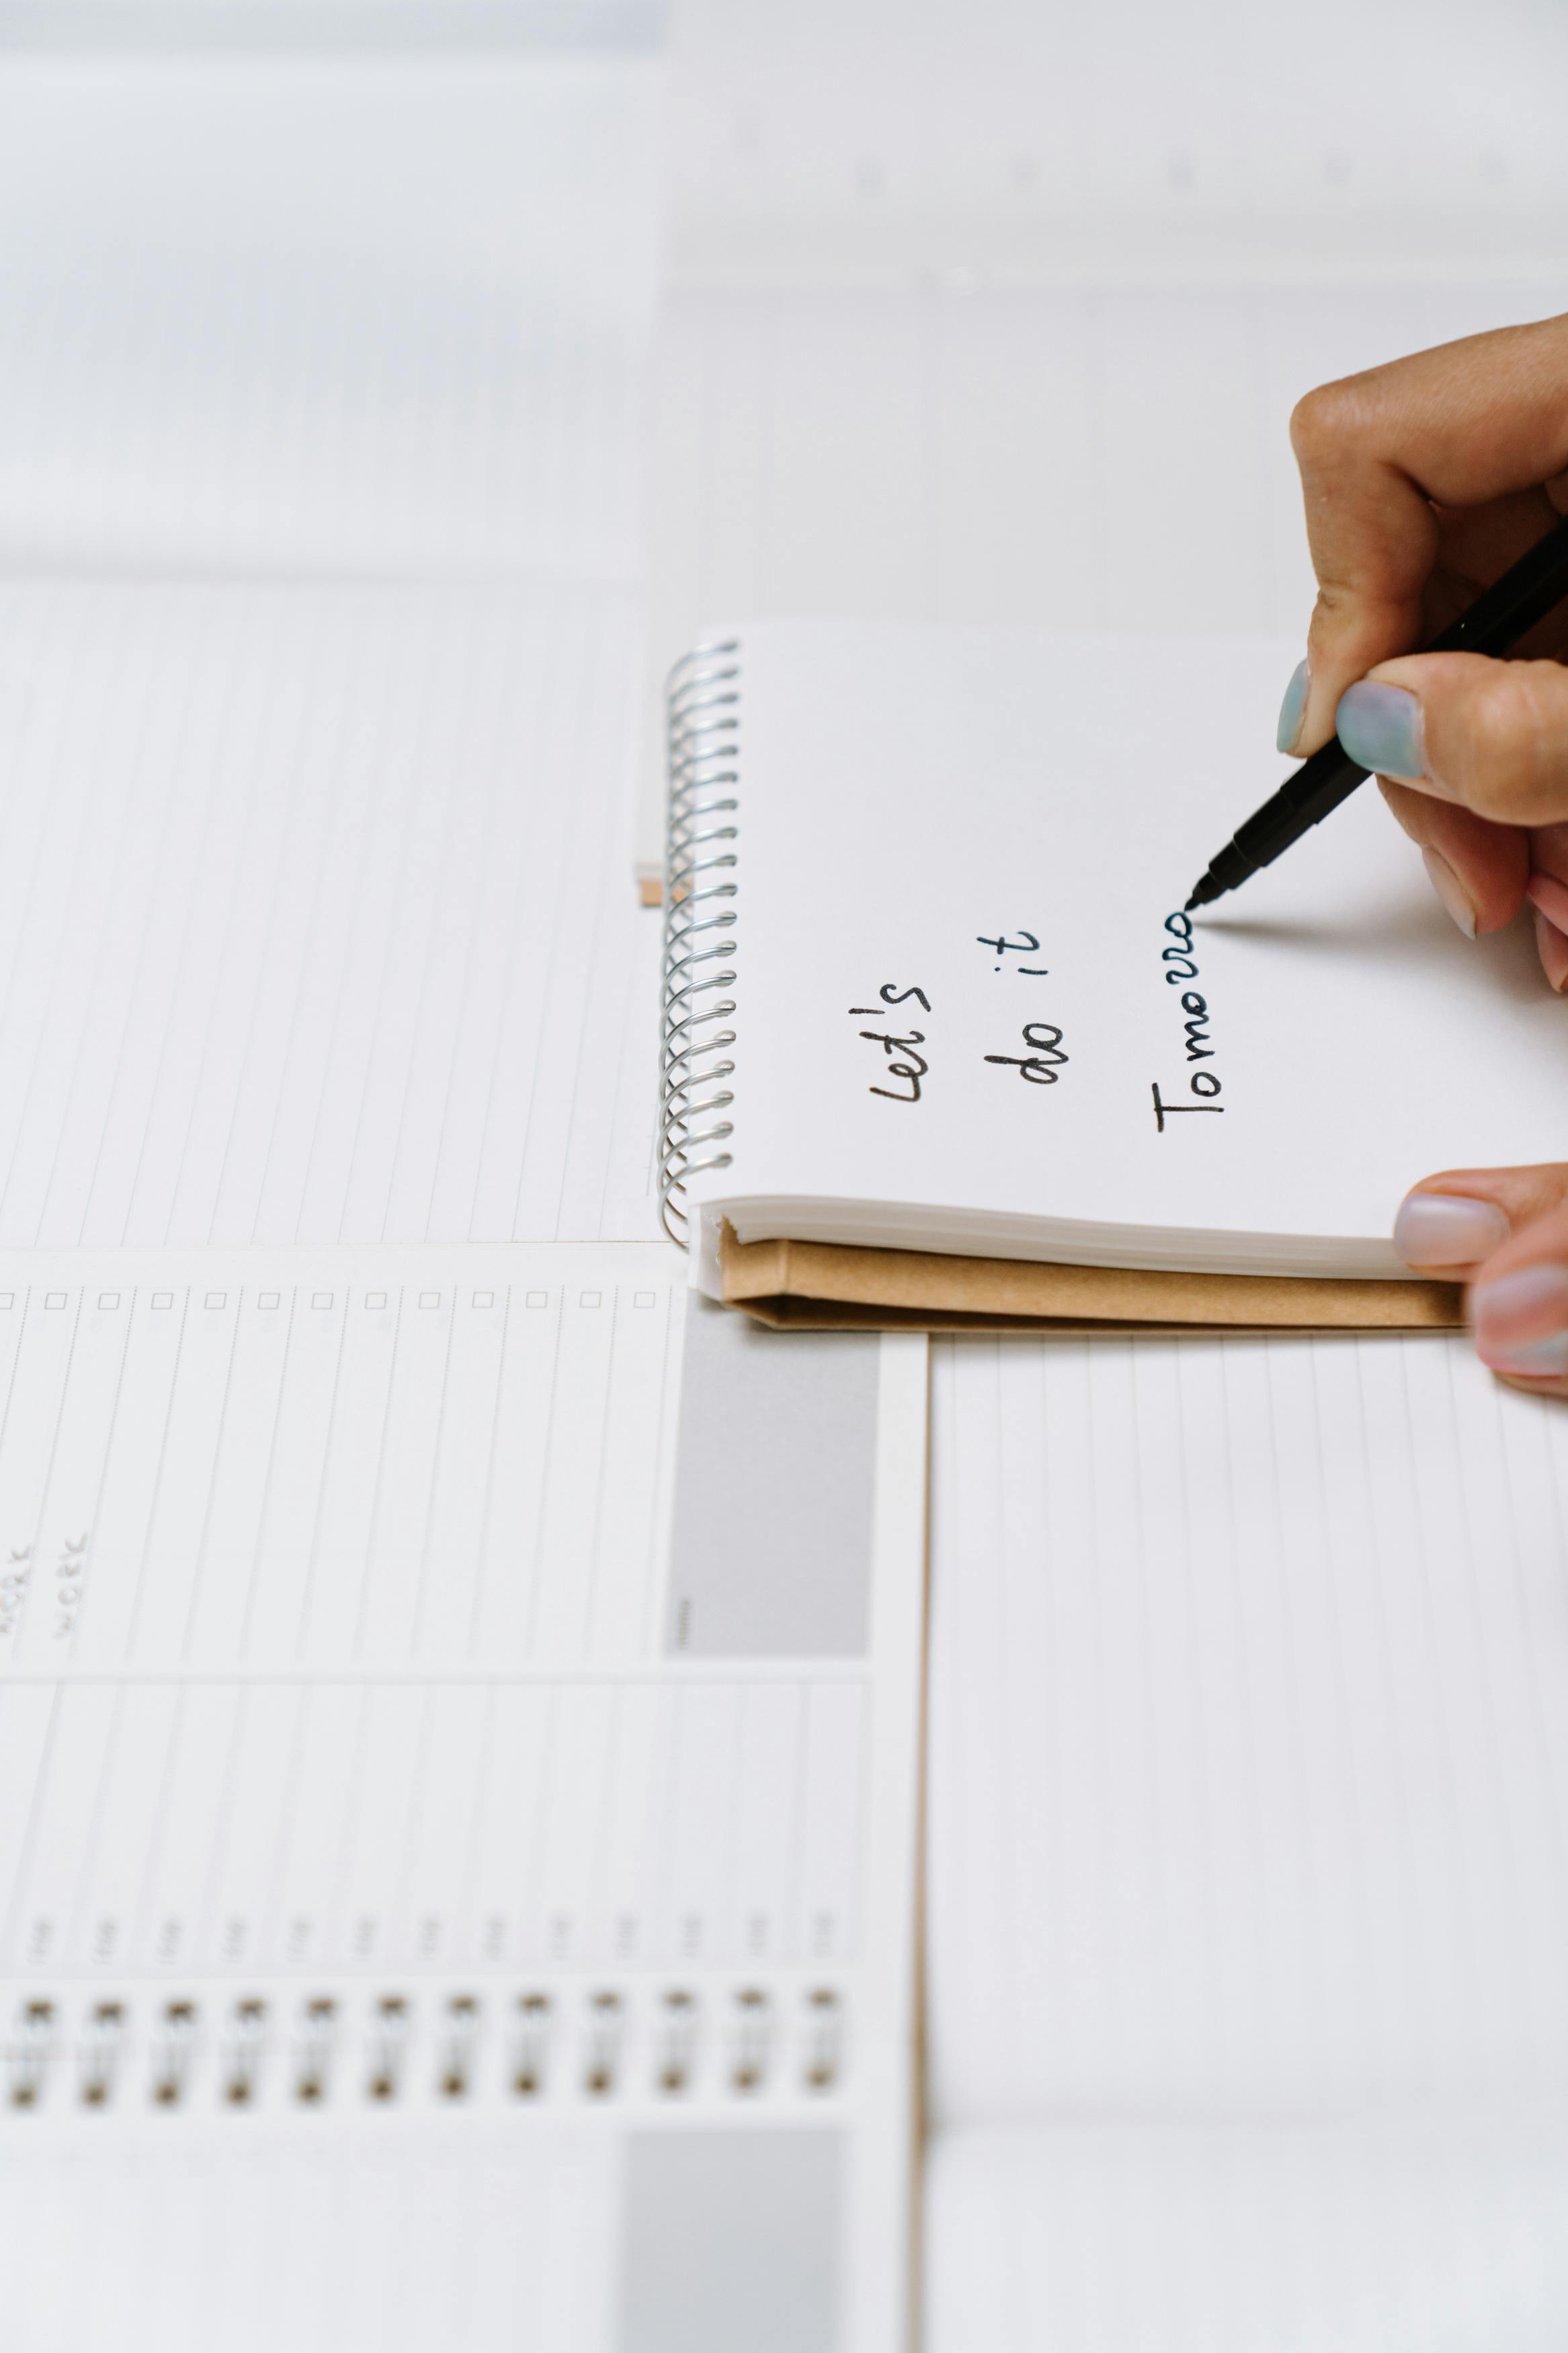 Let's
do it
Tomorro
WORK
WORK